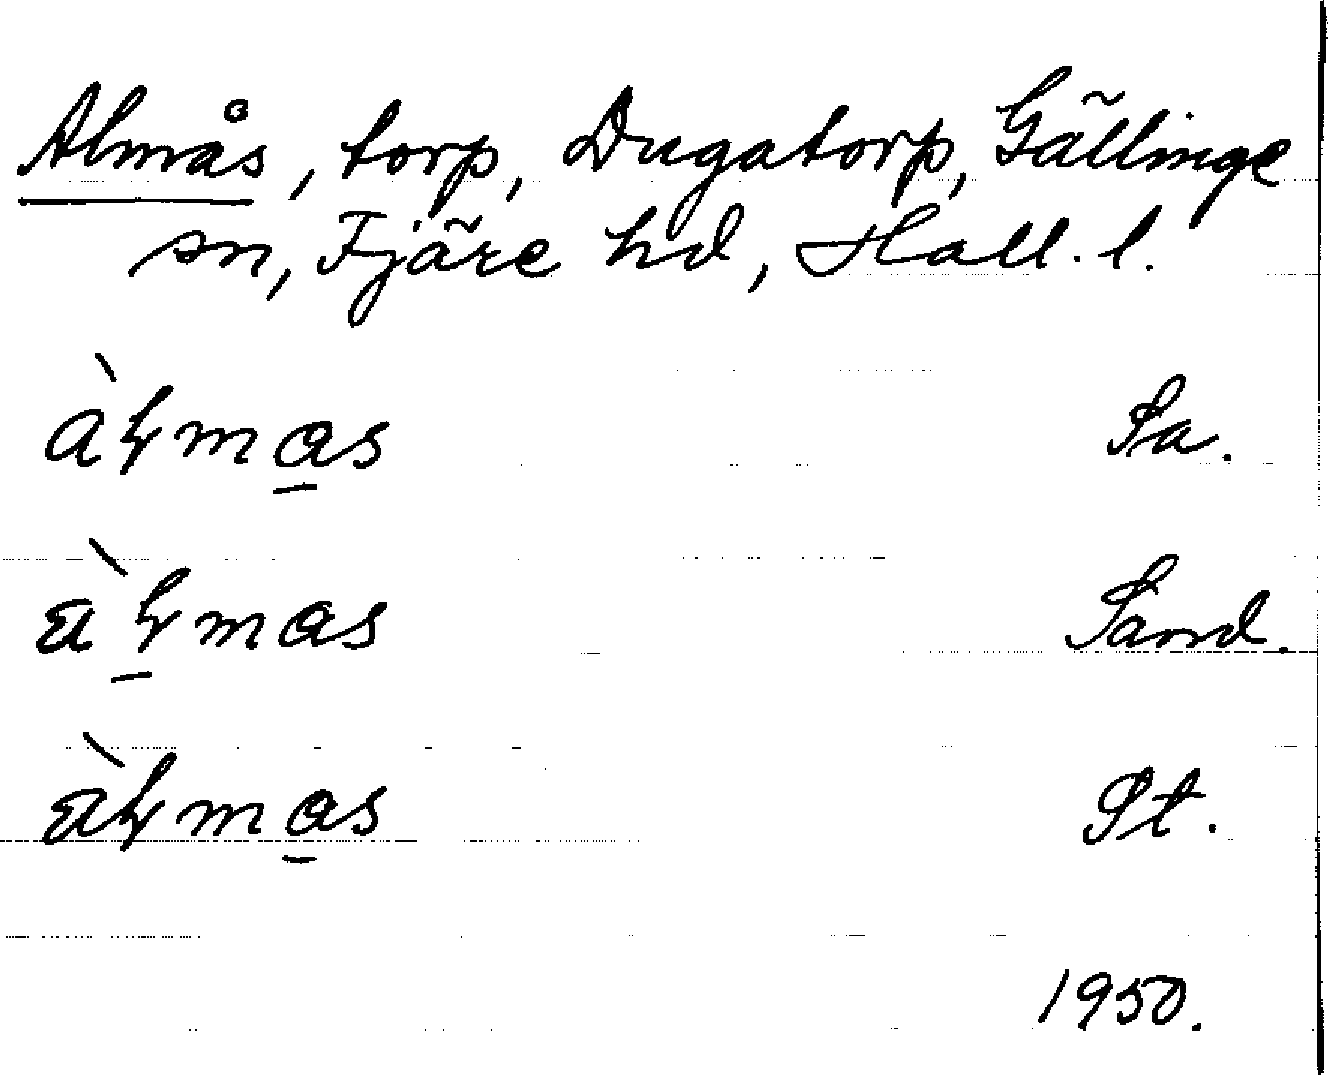 Almås, torp, Dugatorp, Gällinge
sn, Fjäre hd, Hall. l.
àɫmas Sa.
àɫmas Sand.
àɫmas St.
1950.